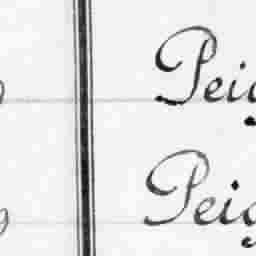 Peig
Peig